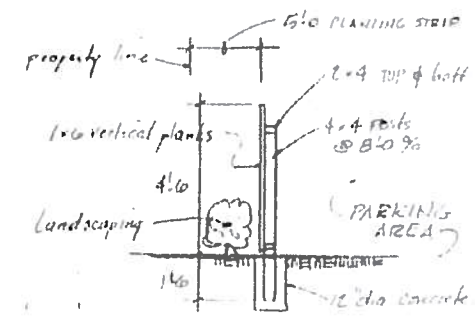 5'-0 PLANTING STRIP
property line
2x4 TOP & bott
1x6 vertical planks
4x4 POSTS
@ 8'-0 %
4'-6
Landscaping
PARKING
AREA
1'-6
12" dia concrete